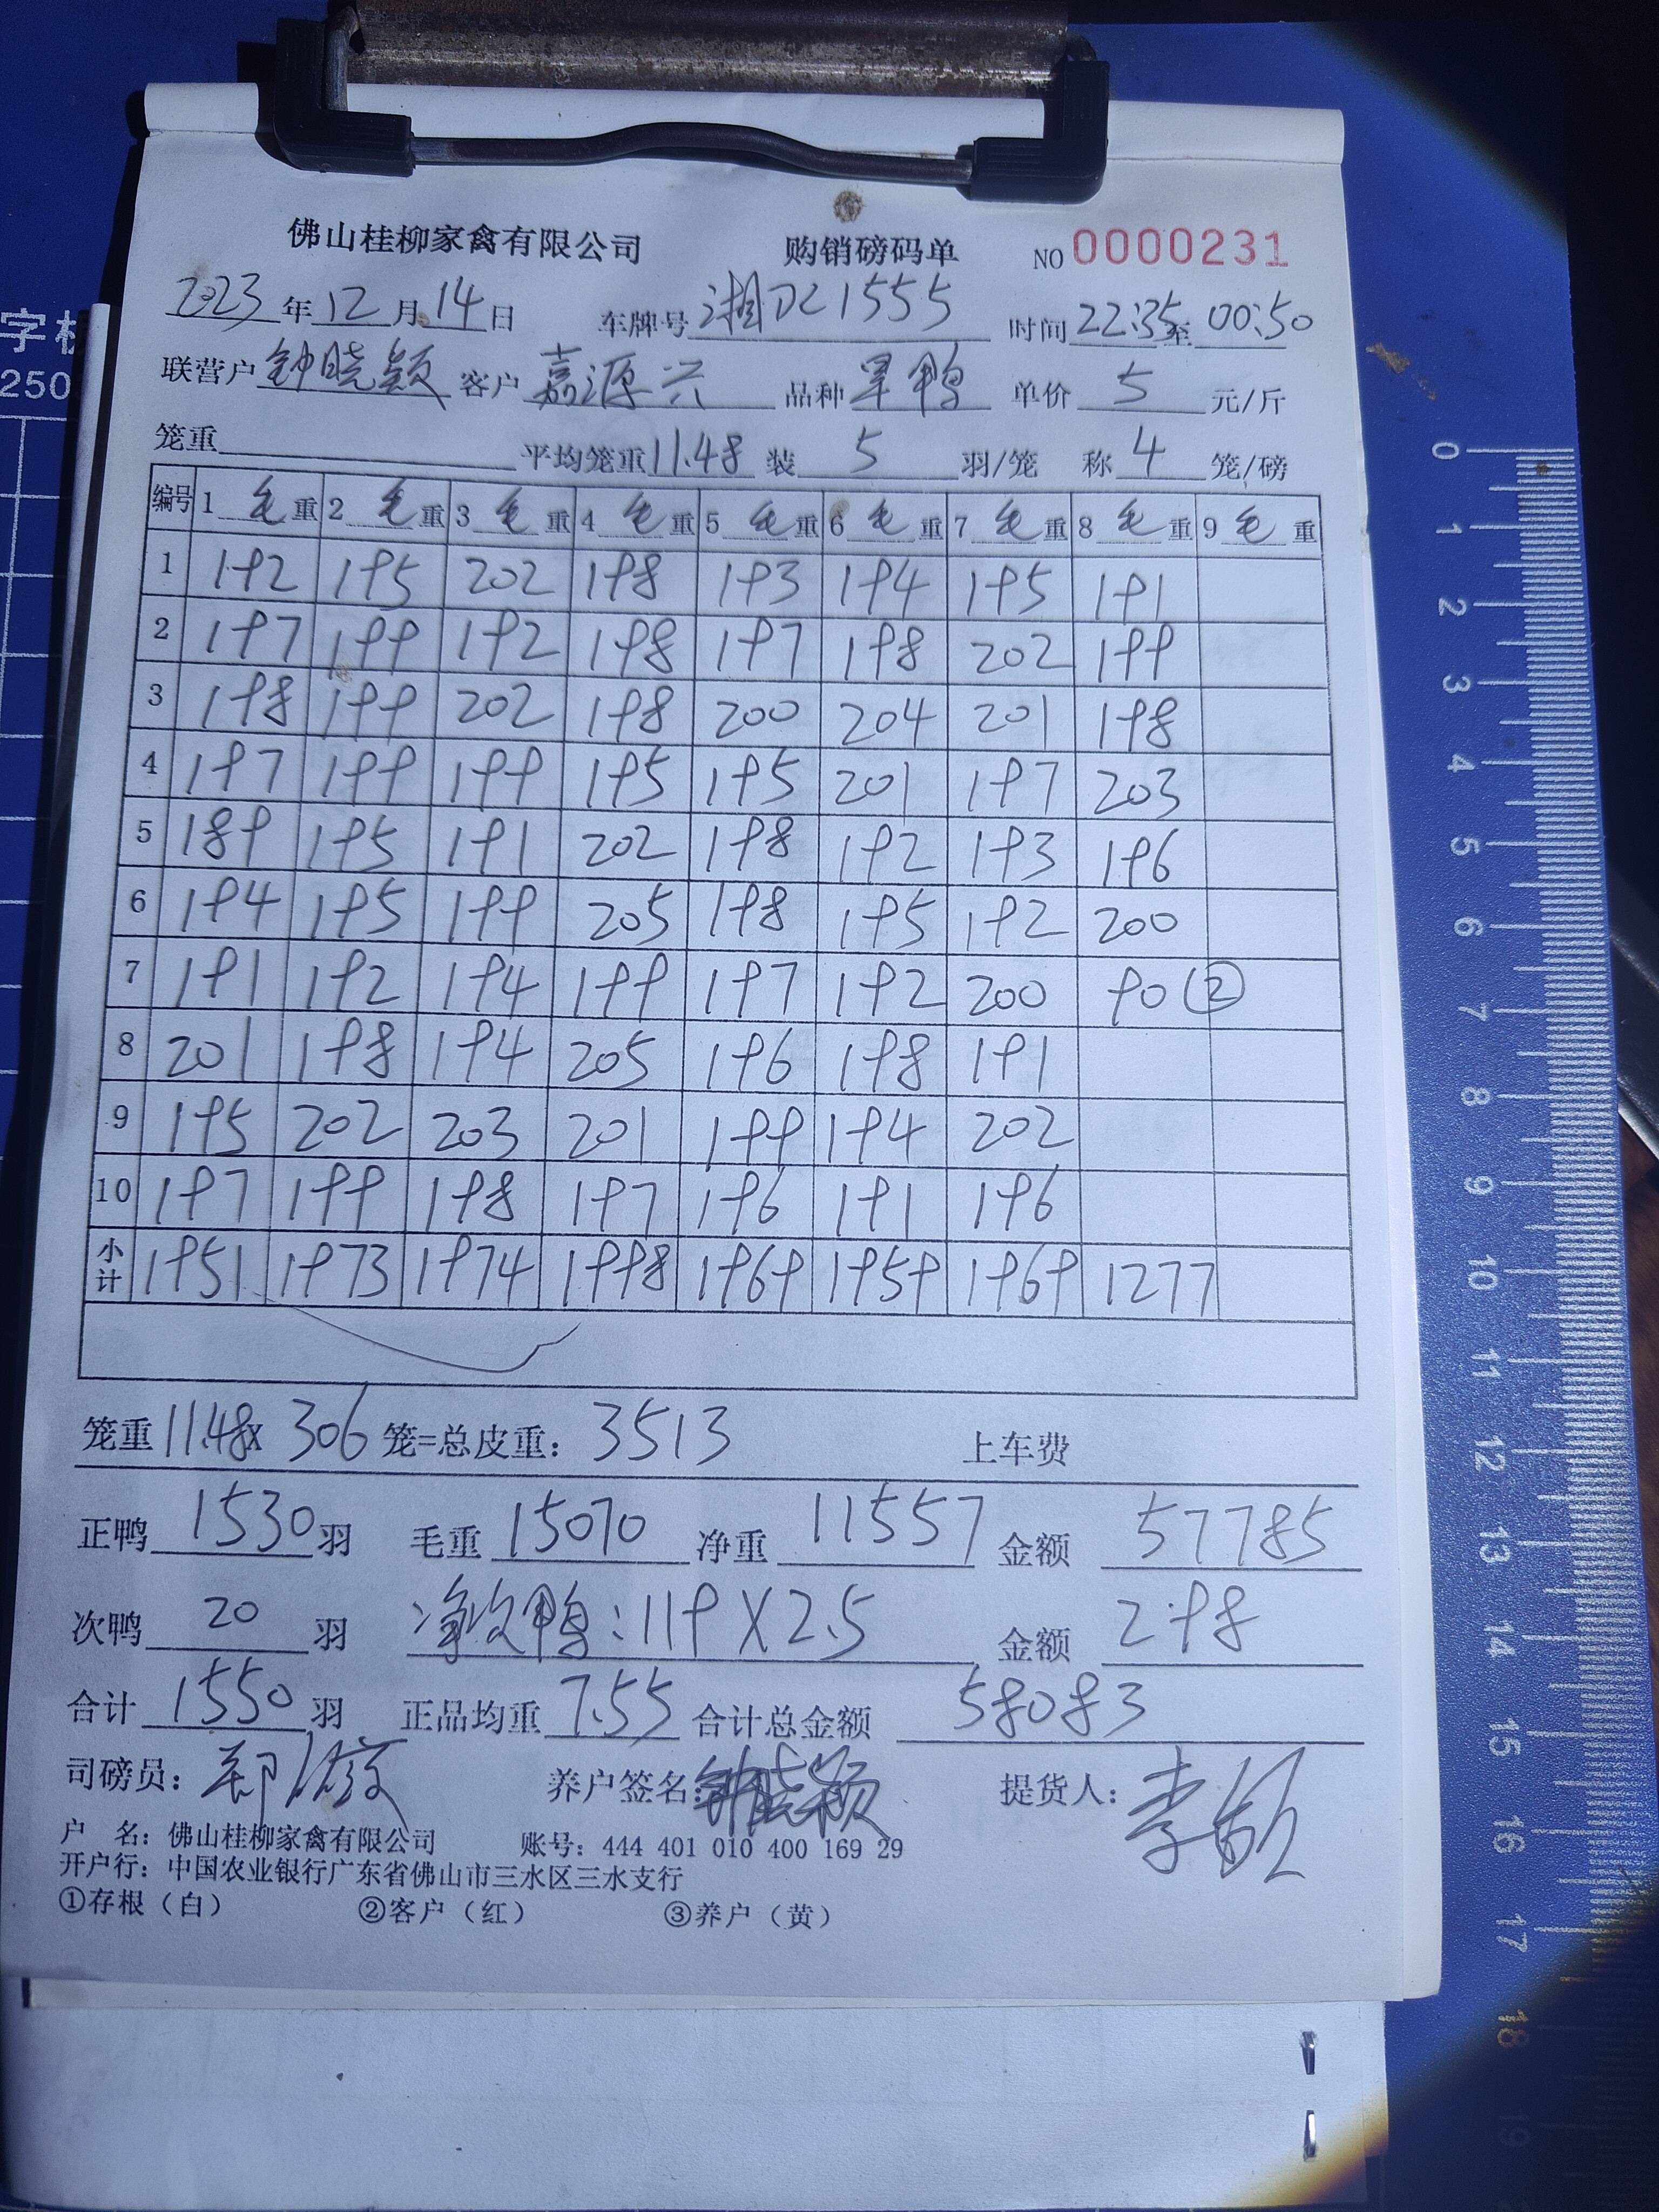 佛山桂柳家禽有限公司 购销磅码单 NO 0000231
2023 年 12 月 14 日 车牌号 湘DL1555 时间 22:35 至 00:50
联营户 钟晓颖 客户 嘉源兴 品种 旱鸭 单价 5 元/斤
笼重 平均笼重 11.48 装 5 羽/笼 称 4 笼/磅
编号 1 毛 重 2 毛 重 3 毛 重 4 毛 重 5 毛 重 6 毛 重 7 毛 重 8 毛 重 9 毛 重
1 192 195 202 198 193 194 195 191
2 197 199 192 198 197 198 202 199
3 198 199 202 198 200 204 201 198
4 197 199 199 195 195 201 197 203
5 189 195 191 202 198 192 193 196
6 194 195 199 205 198 195 192 200
7 191 192 194 199 197 192 200 90 (②
8 201 198 194 205 196 198 191
9 195 202 203 201 199 194 202
10 197 199 198 197 196 191 196
小计 1951 1973 1974 1998 1969 1959 1969 1277
笼重 11.48 x 306 笼=总皮重: 3513 上车费
正鸭 1530 羽 毛重 15070 净重 11557 金额 57785
次鸭 20 羽 净次鸭:119 X 2.5 金额 298
合计 1550 羽 正品均重 7.55 合计总金额 58083
司磅员: 养户签名: 钟晓颖 提货人: 李
户 名: 佛山桂柳家禽有限公司 账号: 444 401 010 400 169 29
开户行: 中国农业银行广东省佛山市三水区三水支行
①存根（白） ②客户（红） ③养户（黄）
250
0 1 2 3 4 5 6 7 8 9 10 11 12 13 14 15 16 17 18 19